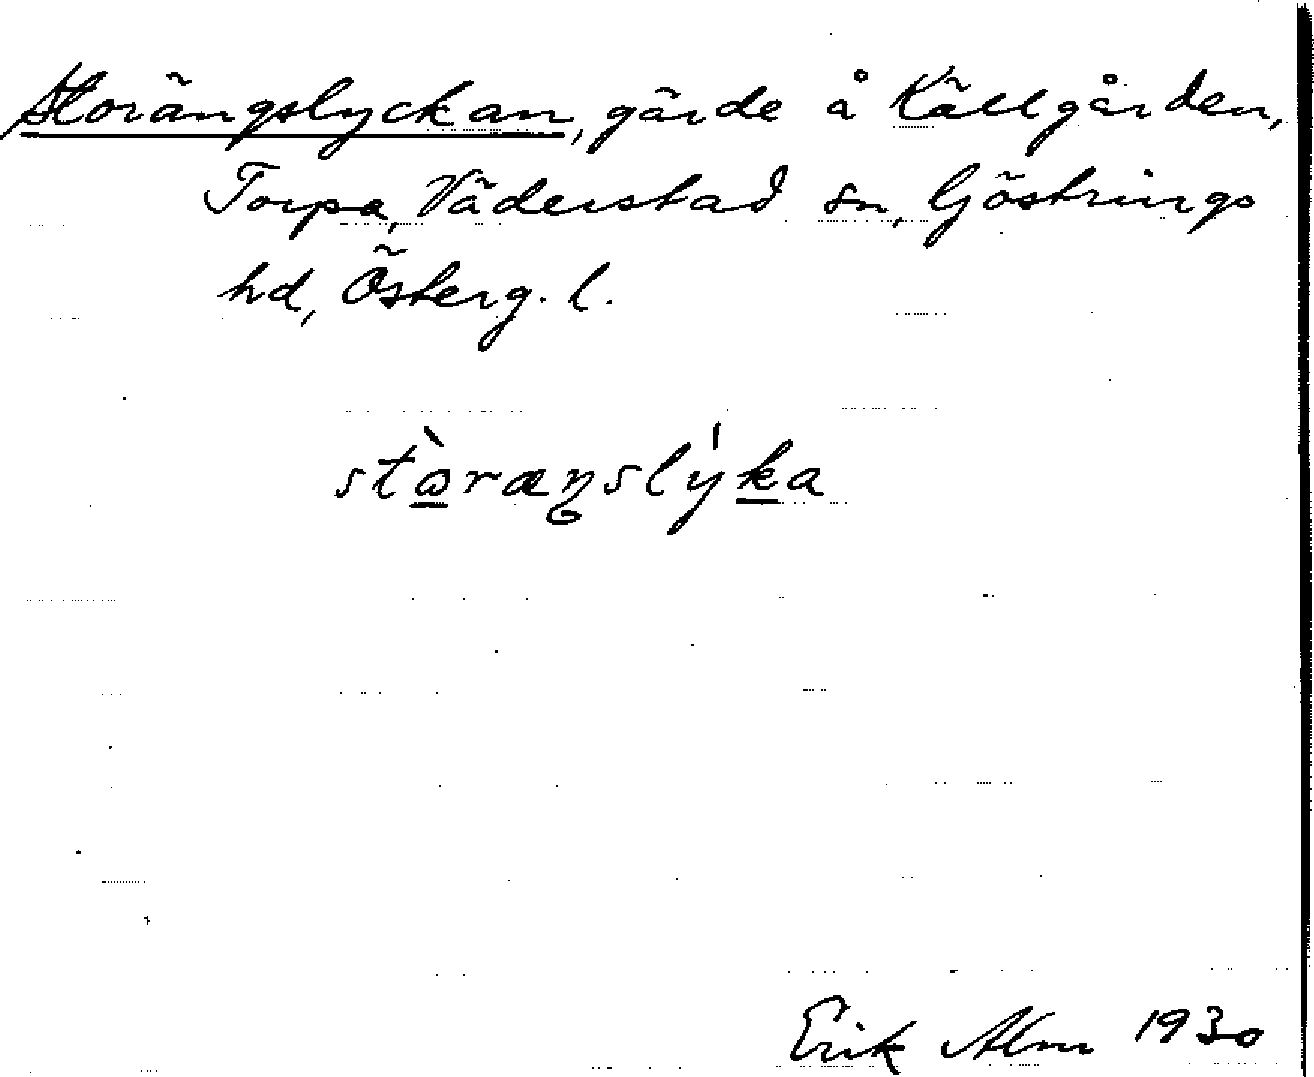 Storängslyckan, gärde å Källgården,
Torpa, Väderstad sn, Göstrings
hd, Österg. l.
stὼræŋslýka
Erik Alm 1930